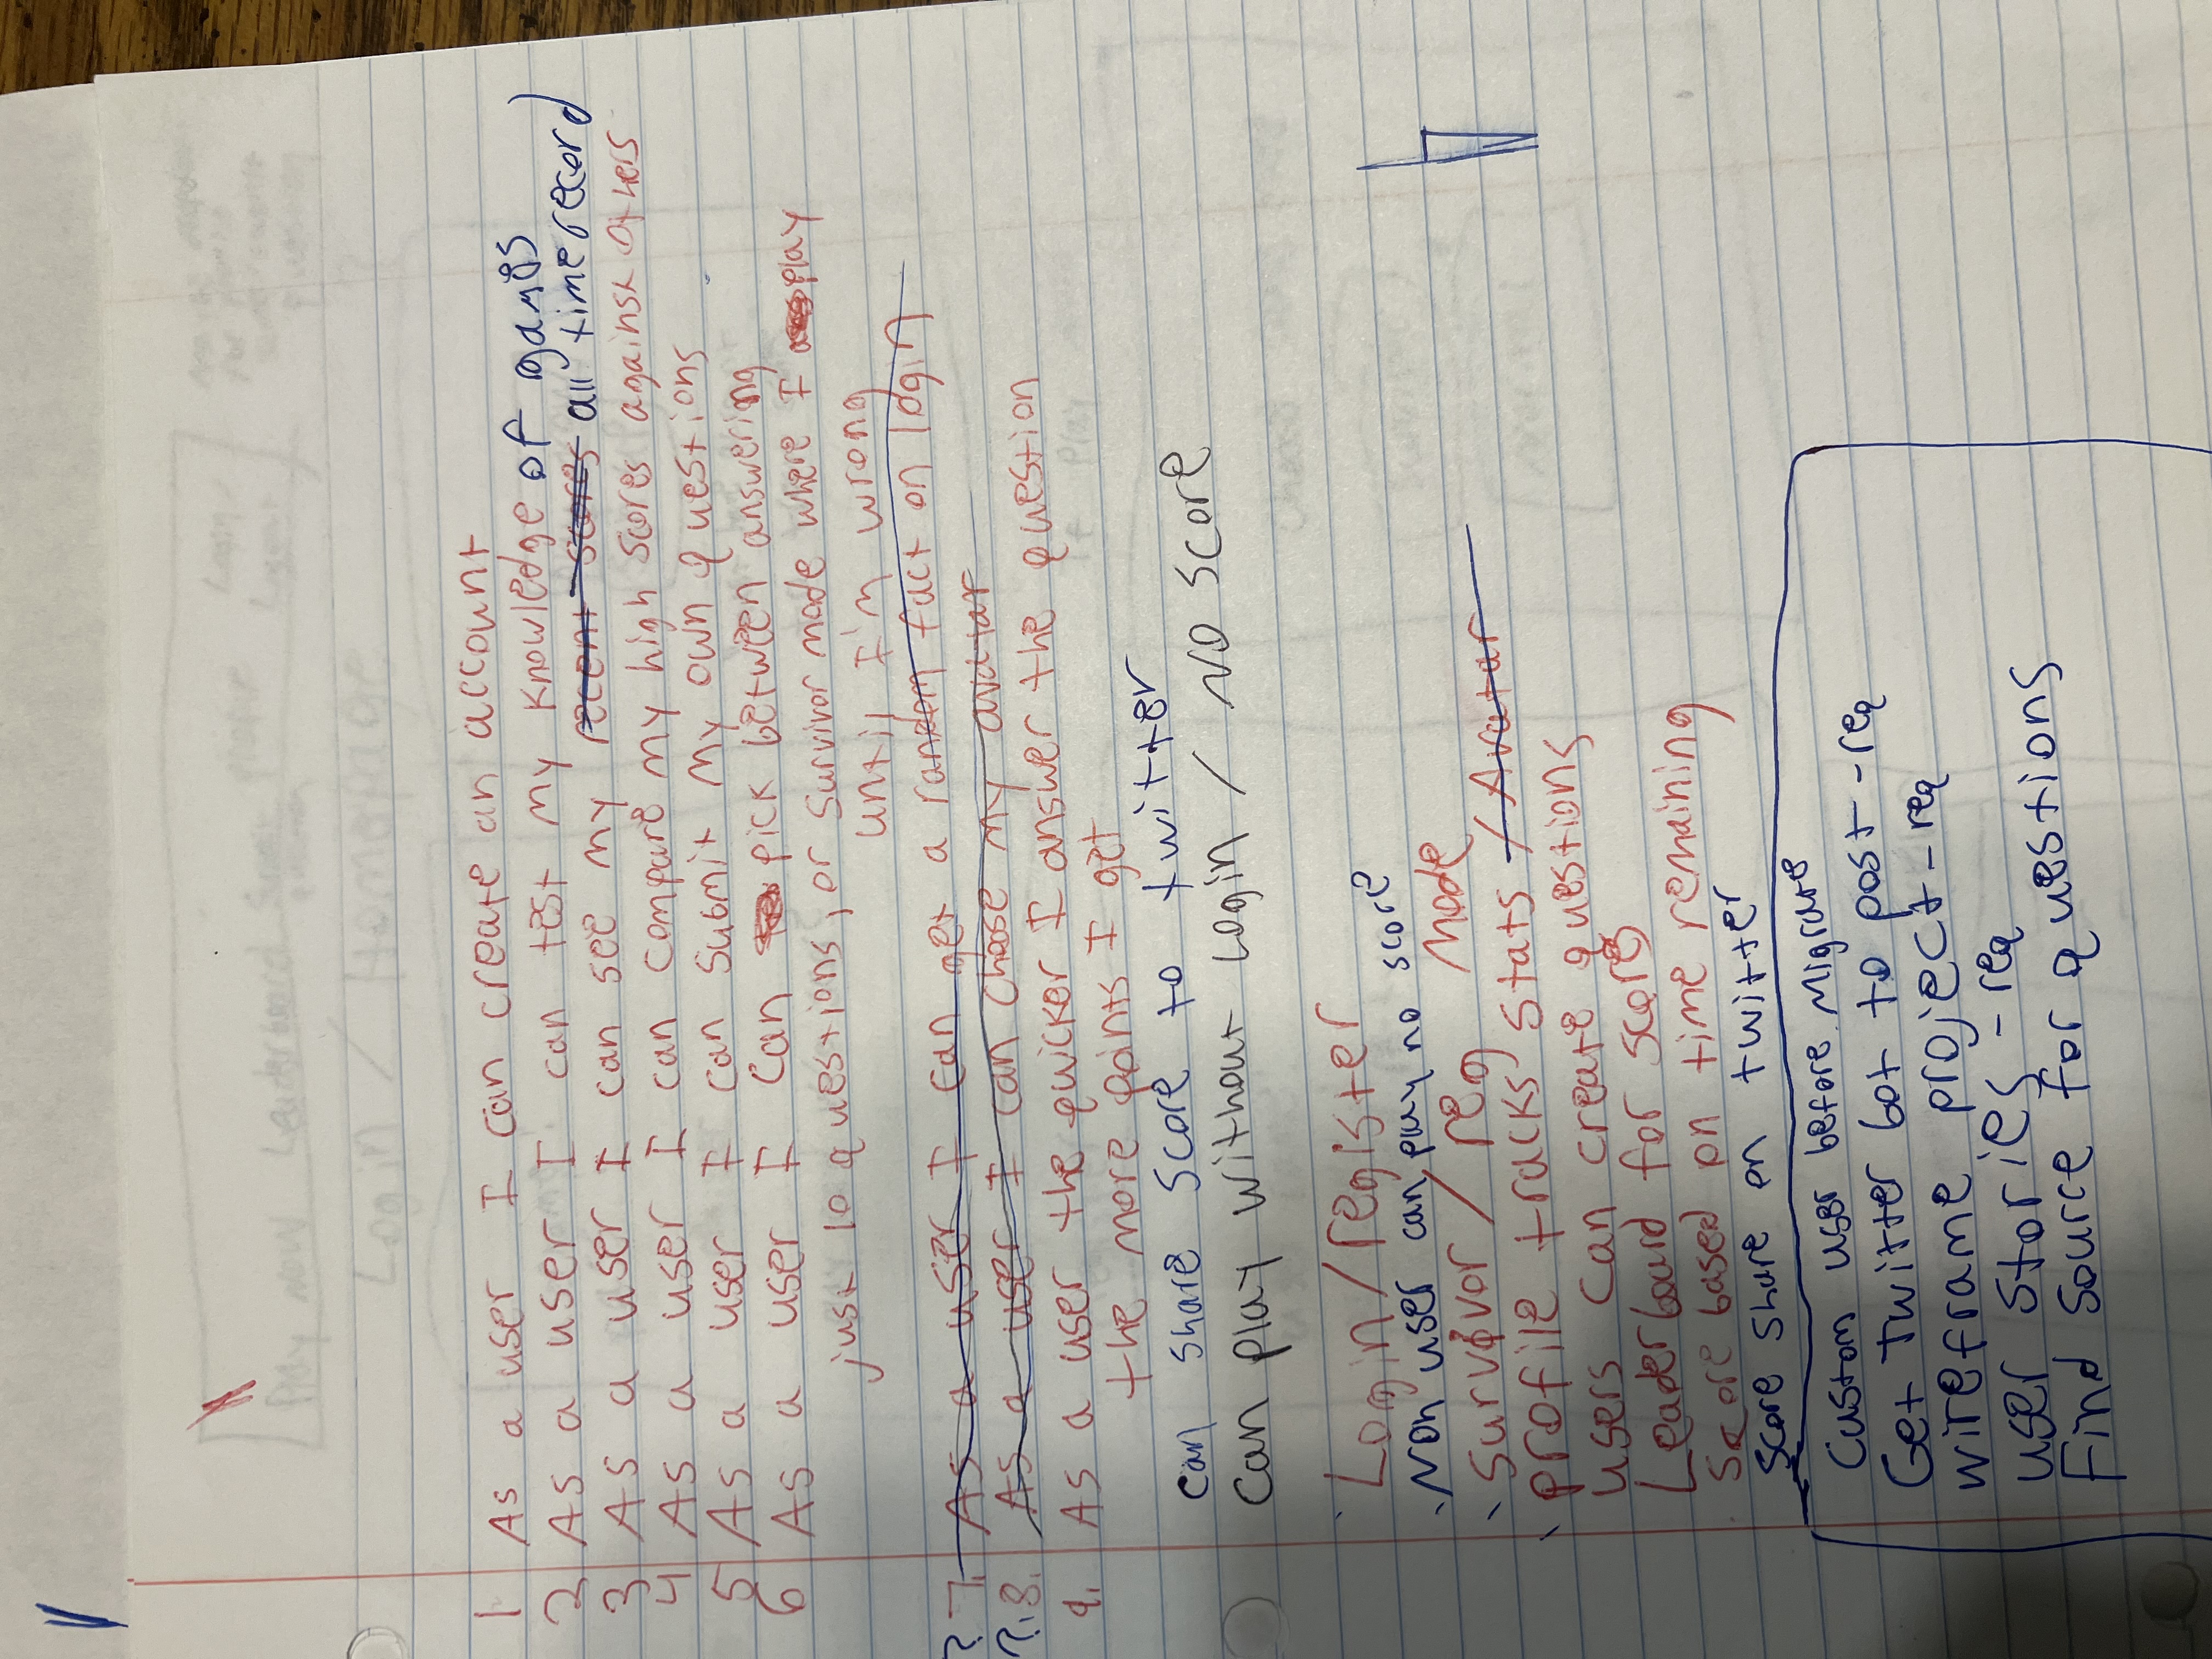 1 As a user I can create an account
2 As a user I can test my knowledge of games
3 As a user I can see my recent scores all time record
4 As a user I can compare my high scores against others
5 As a user I can submit my own questions
6 As a user I can pick between answering
just 10 questions, or survivor mode where I play
until I'm wrong
? 7. As a user I can get a random fact on login
?. 8. As a user I can choose my avatar
9. As a user the quicker I answer the question
the more points I get
can share score to twitter
Can play without login / NO score
Login/register
Non user can play no score
Survivor / reg Mode
profile tracks stats / Avatar
users can create questions
Leaderboard for score
Score based on time remaining
score share on twitter
Custom user before migrate
Get Twitter bot to post - req
wireframe project - req
user stories - req
Find source for questions